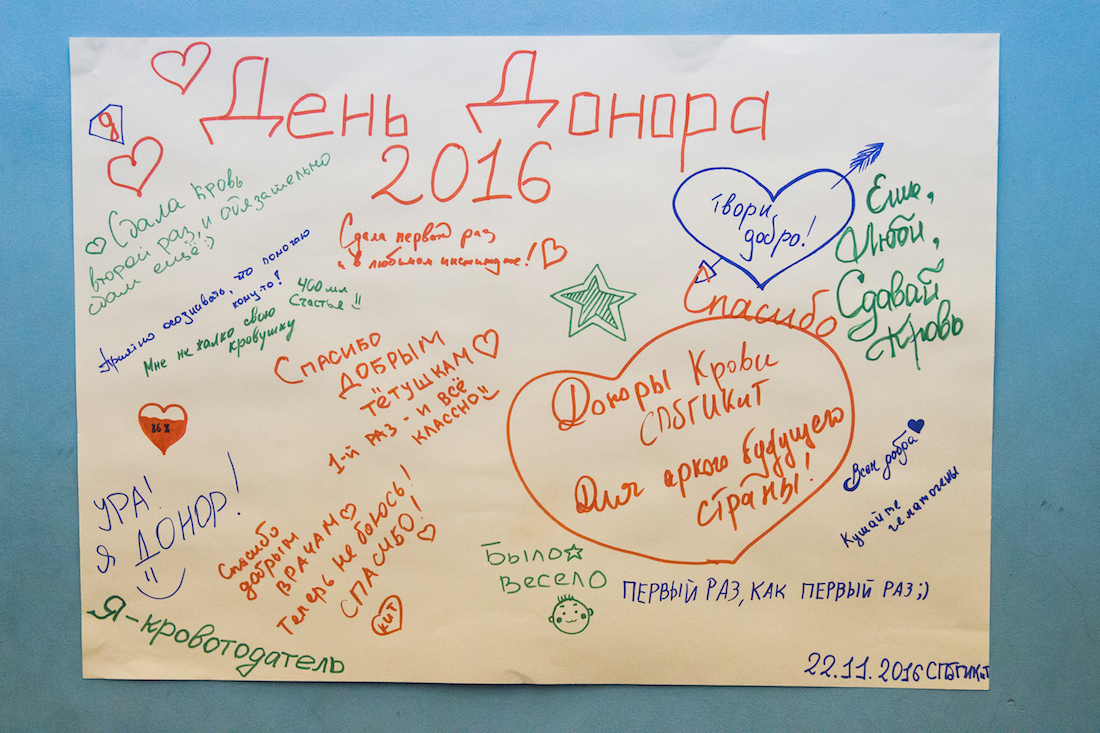 День Донора
2016
Я
Сдала кровь
второй раз, и обязательно
сдам ещё :)
Приятно осознавать, что помогаю
кому-то!
400 мл
Счастья!!
Мне не жалко свою
кровушку
Сдала первый раз
и в любимом институте!
Твори
добро!
Ешь,
Люби,
Сдавай
Кровь
Спасибо
Доноры Крови
СПбГИКиТ
Для яркого будущего
страны!
Спасибо
добрым
тётушкам
1-й раз - и всё
классно!!
УРА!
Я ДОНОР!
Спасибо
добрым
врачам
Теперь не боюсь!
СПАСИБО!
КИТ
Всем добра
Кушайте
гематогены
Было
Весело
ПЕРВЫЙ РАЗ, КАК ПЕРВЫЙ РАЗ ;)
Я-кровотодатель
22.11.2016 СПбГИКиТ